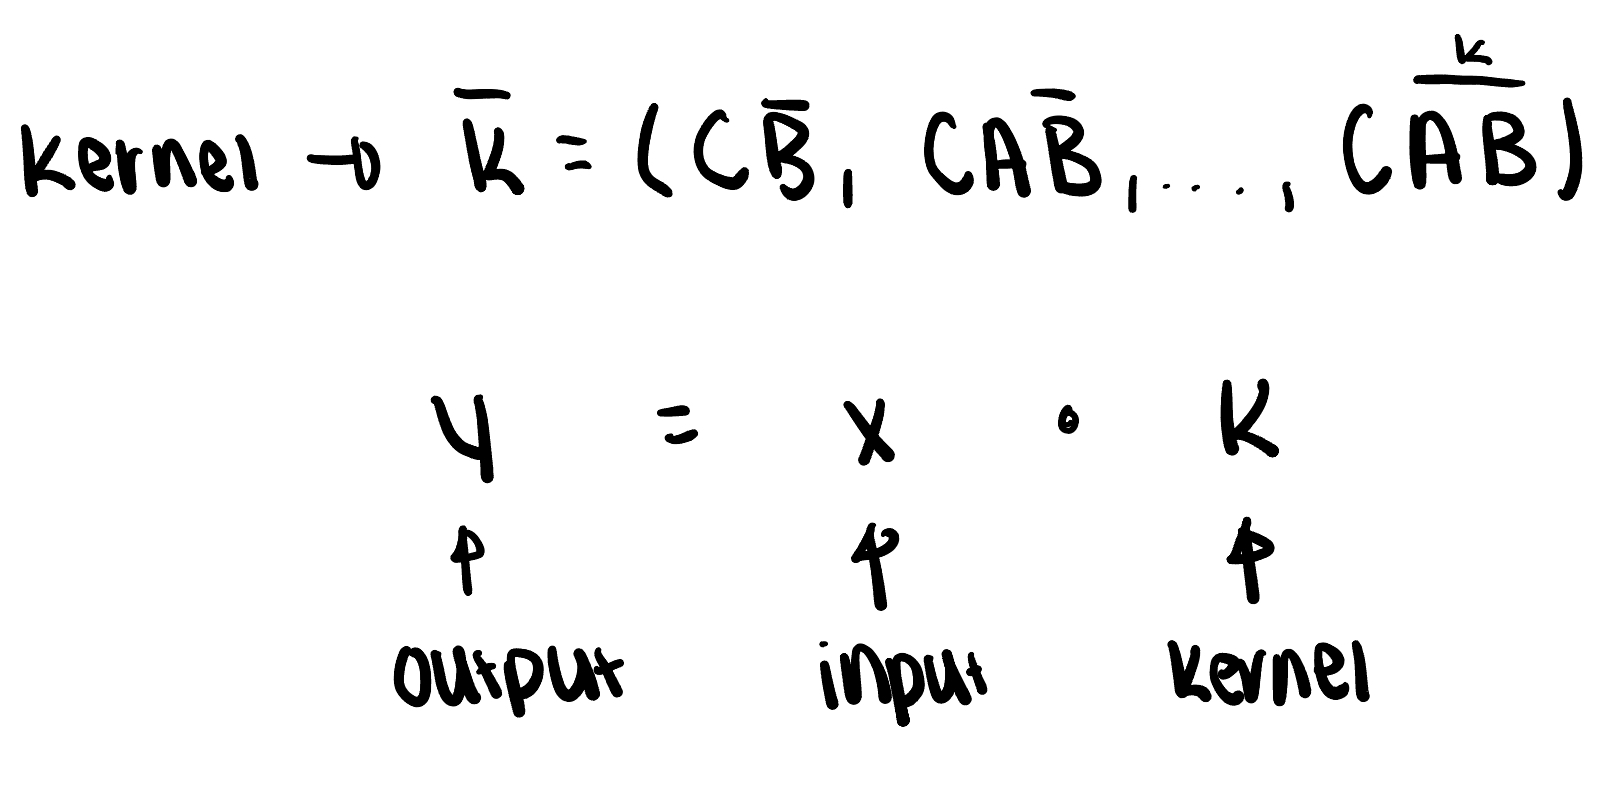 kernel → K̅ = (CB̅, CAB̅, ...., CA̅B̅ᵏ)
y = x • K
↑ ↑ ↑
output input kernel